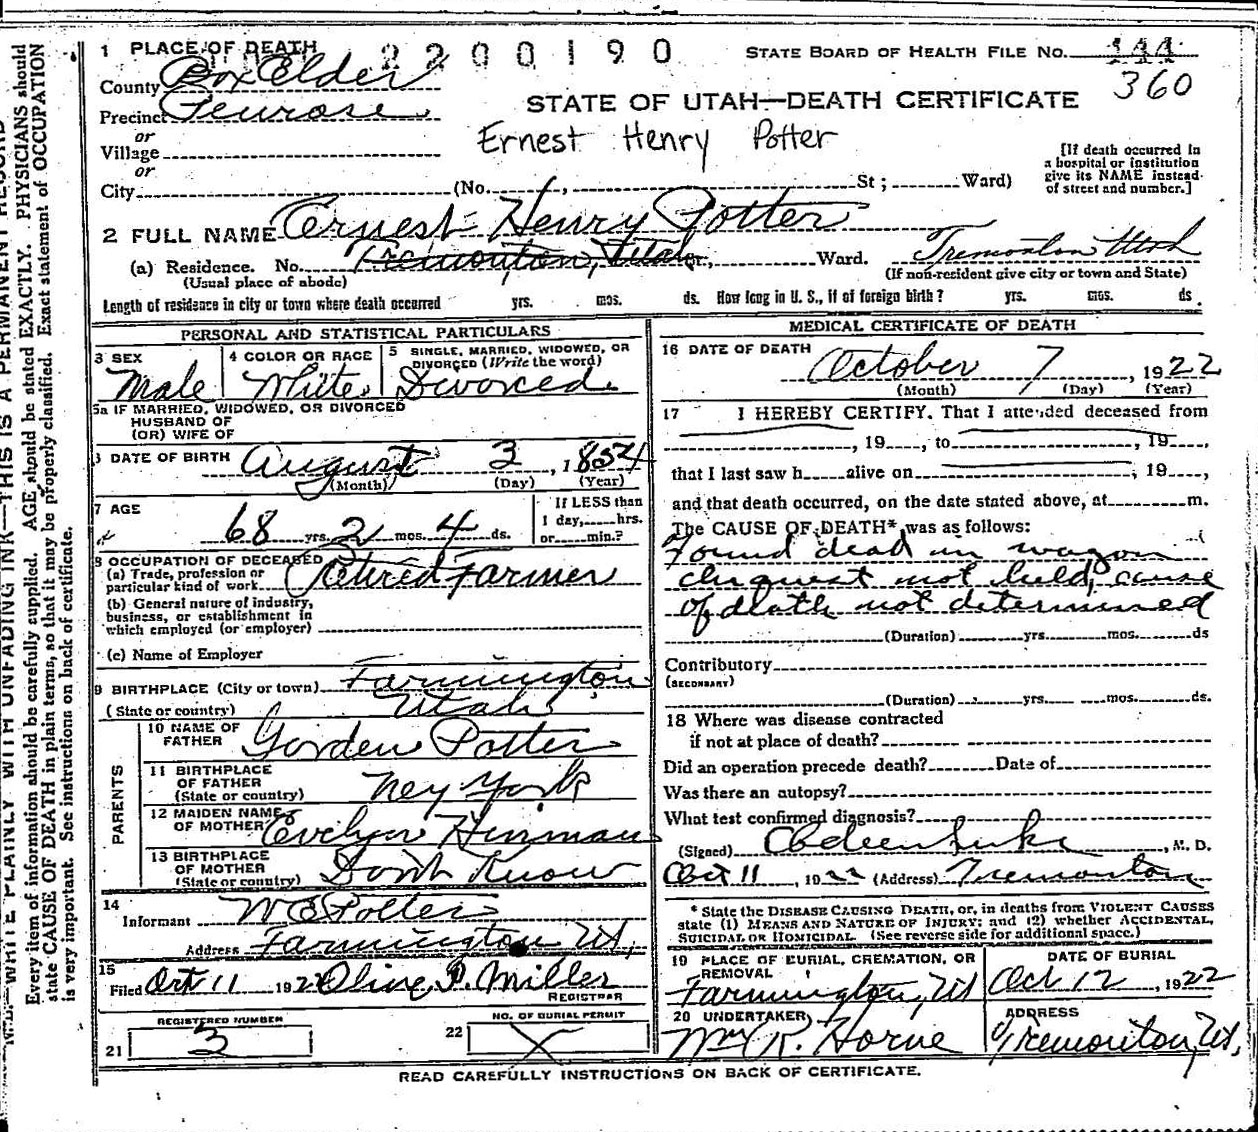 1 PLACE OF DEATH 2200190 STATE BOARD OF HEALTH FILE NO. 144
County Box Elder 360
STATE OF UTAH—DEATH CERTIFICATE
Precinct Penrose
or
Ernest Henry Potter
Village
or
[If death occurred in a hospital or institution give its NAME instead of street and number.]
City (No. , St; Ward)
2 FULL NAME Ernest Henry Potter
(a) Residence. No. Tremonton, Utah, Ward. Tremonton Utah
(Usual place of abode) (If non-resident give city or town and State)
Length of residence in city or town where death occurred yrs. mos. ds. How long in U. S., if of foreign birth? yrs. mos. ds.
PERSONAL AND STATISTICAL PARTICULARS
3 SEX Male
4 COLOR OR RACE White
5 SINGLE, MARRIED, WIDOWED, OR DIVORCED (Write the word) Divorced
5a IF MARRIED, WIDOWED, OR DIVORCED
HUSBAND OF
(OR) WIFE OF
6 DATE OF BIRTH August 3, 1854
(Month) (Day) (Year)
7 AGE 68 yrs. 2 mos. 4 ds.
If LESS than
1 day, hrs.
or min.?
8 OCCUPATION OF DECEASED
(a) Trade, profession or
particular kind of work Retired Farmer
(b) General nature of industry,
business, or establishment in
which employed (or employer)
(c) Name of Employer
9 BIRTHPLACE (City or town) Farmington
(State or country) Utah
PARENTS
10 NAME OF
FATHER Gorden Potter
11 BIRTHPLACE
OF FATHER
(State or country) Ney York
12 MAIDEN NAME
OF MOTHER Evelyn Hinman
13 BIRTHPLACE
OF MOTHER
(State or country) Don't Know
14
Informant W E Potter
Address Farmington Ut,
15
Filed Oct 11 1922 Olive P. Miller
REGISTRAR
REGISTERED NUMBER
21 3
NO. OF BURIAL PERMIT
22 X
MEDICAL CERTIFICATE OF DEATH
16 DATE OF DEATH
October 7, 1922
(Month) (Day) (Year)
17 I HEREBY CERTIFY, That I attended deceased from
, 19 , to , 19 ,
that I last saw h alive on , 19 ,
and that death occurred, on the date stated above, at m.
The CAUSE OF DEATH* was as follows:
Found dead in wagon
inquest not held, cause
of death not determined
(Duration) yrs. mos. ds
Contributory
(SECONDARY)
(Duration) yrs. mos. ds.
18 Where was disease contracted
if not at place of death?
Did an operation precede death? Date of
Was there an autopsy?
What test confirmed diagnosis?
(Signed) , M. D.
Oct 11, 1922 (Address) Tremonton
* State the DISEASE CAUSING DEATH, or, in deaths from VIOLENT CAUSES
state (1) MEANS AND NATURE OF INJURY; and (2) whether ACCIDENTAL,
SUICIDAL, OR HOMICIDAL. (See reverse side for additional space.)
19 PLACE OF BURIAL, CREMATION, OR
REMOVAL
Farmington, Ut
DATE OF BURIAL
Oct 12, 1922
20 UNDERTAKER
Wm R. Horne
ADDRESS
Tremonton, Ut,
READ CAREFULLY INSTRUCTIONS ON BACK OF CERTIFICATE.
WRITE PLAINLY WITH UNFADING INK—THIS IS A PERMANENT RECORD
Every item of information should be carefully supplied. AGE should be stated EXACTLY. PHYSICIANS should
state CAUSE OF DEATH in plain terms, so that it may be properly classified. Exact statement of OCCUPATION
is very important. See instructions on back of certificate.